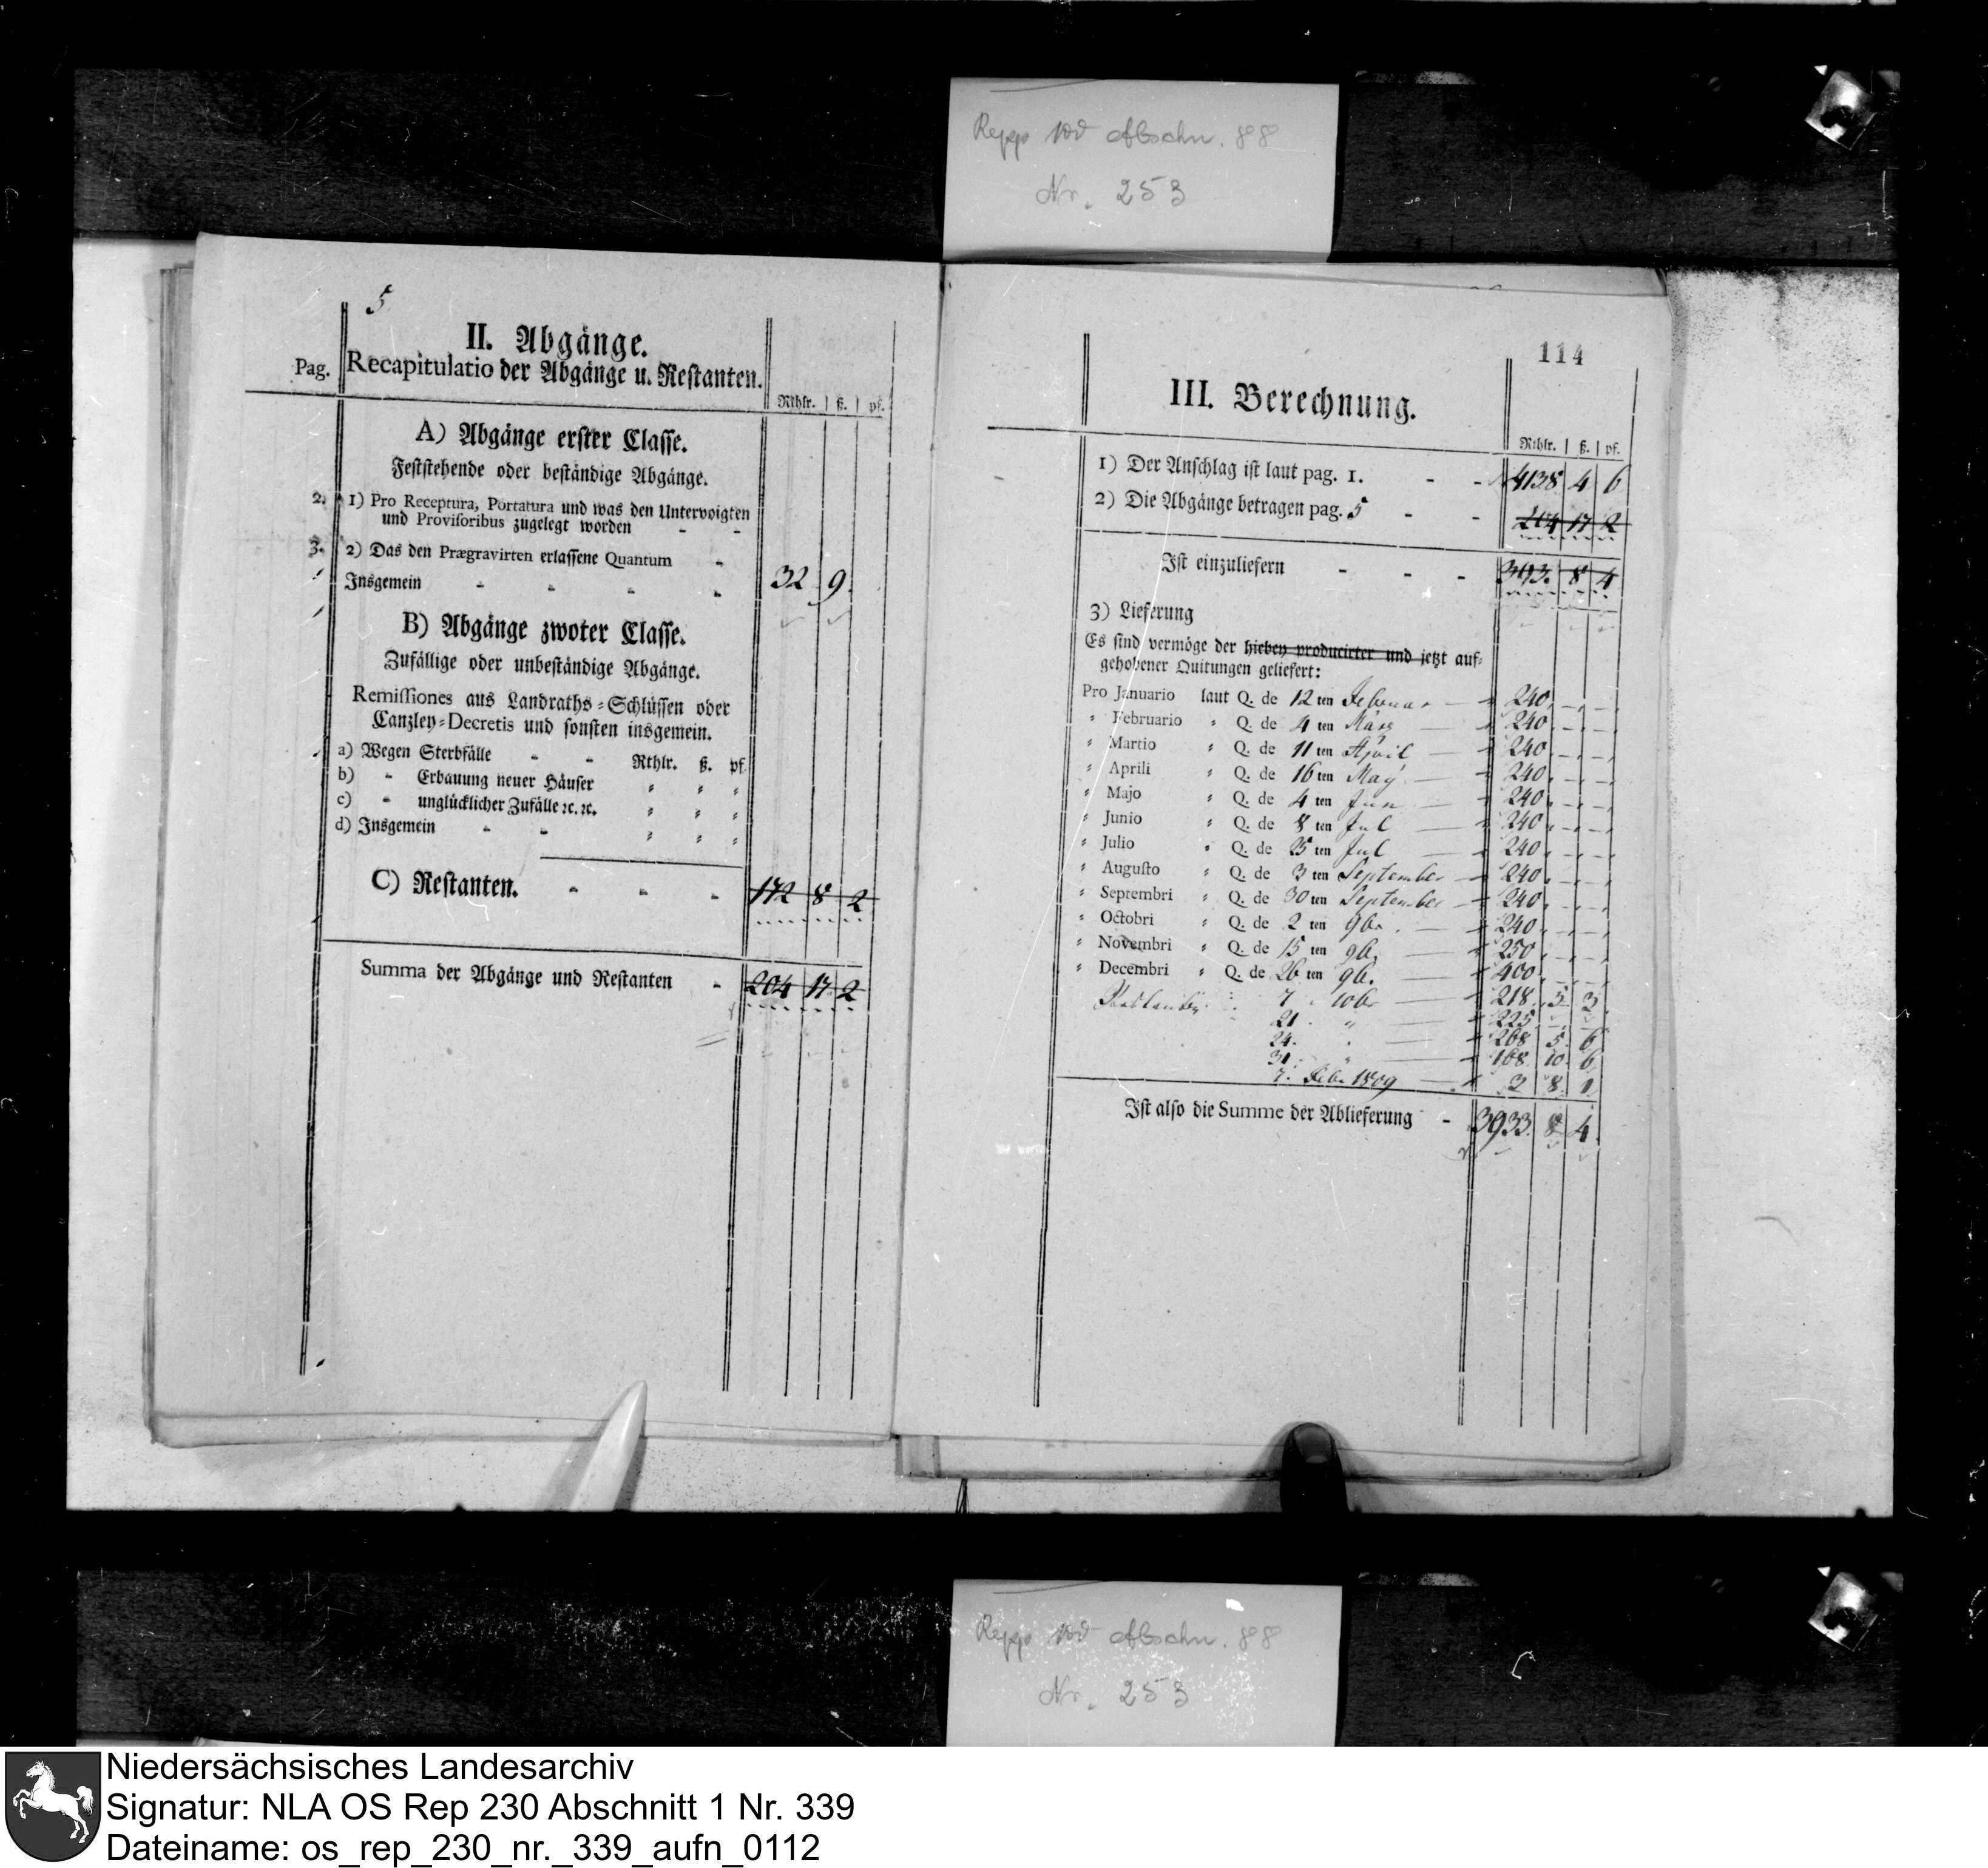 Abschn. 88
Nr. 253
5
II. Abgänge.
Pag. Recapitulatio der Abgänge u. Restanten.
Rthlr. ß. pf.
A) Abgänge erster Classe.
Feststehende oder beständige Abgänge.
2. 1) Pro Receptura, Portatura und was den Untervoigten
und Provisoribus zugelegt worden - -
3. 2) Das den Prægravirten erlassene Quantum -
Insgemein - - - - 32 9
B) Abgänge zwoter Classe.
Zufällige oder unbeständige Abgänge.
Remissiones aus Landraths-Schlüssen oder
Canzley-Decretis und sonsten insgemein.
a) Wegen Sterbfälle - - Rthlr. ß. pf.
b) - Erbauung neuer Häuser " " "
c) - unglücklicher Zufälle ꝛc. ꝛc. " " "
d) Insgemein - - " " "
C) Restanten. - - - 172 8 2
Summa der Abgänge und Restanten - 204 17 2
114
III. Berechnung.
Rthlr. ß. pf.
1) Der Anschlag ist laut pag. 1. - - 4138 4 6
2) Die Abgänge betragen pag. 5 - - 204 17 2
Ist einzuliefern - - - 393. 8 4
3) Lieferung
Es sind vermöge der hiebey producirter und jetzt auf-
gehobener Quitungen geliefert:
Pro Januario laut Q. de 12 ten Februar — 240 - -
" Februario " Q. de 4 ten März — 240 - -
" Martio " Q. de 11 ten April — 240 - -
" Aprili " Q. de 16 ten May — 240 - -
" Majo " Q. de 4 ten Jun — 240 - -
" Junio " Q. de 8 ten Jul — 240 - -
" Julio " Q. de 25 ten Jul — 240 - -
" Augusto " Q. de 3 ten September — 240 - -
" Septembri " Q. de 30 ten September — 240 - -
" Octobri " Q. de 2 ten 9br. — 240 - -
" Novembri " Q. de 15 ten 9b. — 250 - -
" Decembri " Q. de 26 ten 9b. — 400 - -
7 10br — 218 5 3
21. " — 225 - -
24. " — 268 5 6
31. " — 168 10 6
7. Feb. 1809 — 2 8 1
Ist also die Summe der Ablieferung - 3933 8 4
Abschn. 88
Nr. 253
Niedersächsisches Landesarchiv
Signatur: NLA OS Rep 230 Abschnitt 1 Nr. 339
Dateiname: os_rep_230_nr._339_aufn_0112